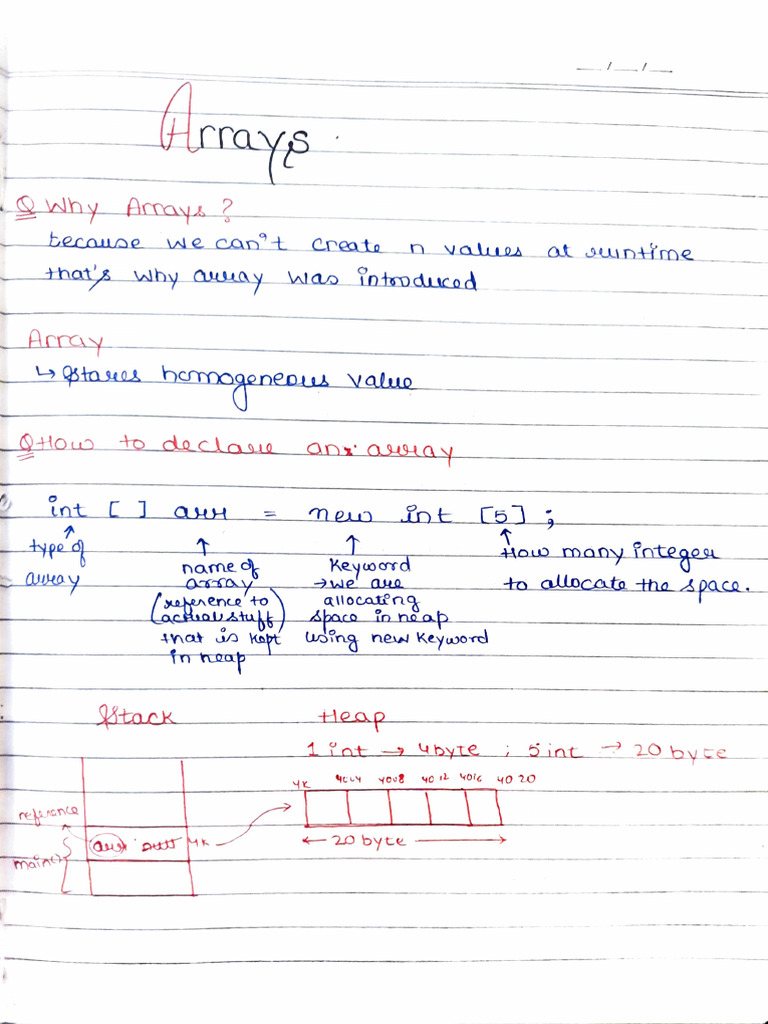 __/__/__
Arrays
Q Why Arrays?
because we can't create n values at runtime
that's why array was introduced
Array
↳ Stores homogeneous value
Q How to declare an array
int [ ] arr = new int [5] ;
type of array
name of array
(reference to actual stuff)
that is kept in heap
Keyword
→ we are allocating
space in heap
using new keyword
How many integer
to allocate the space.
Stack Heap
1 int → 4byte ; 5 int → 20 byte
4K 4004 4008 4012 4016 4020
reference
arr 4K
← 20 byte →
main()